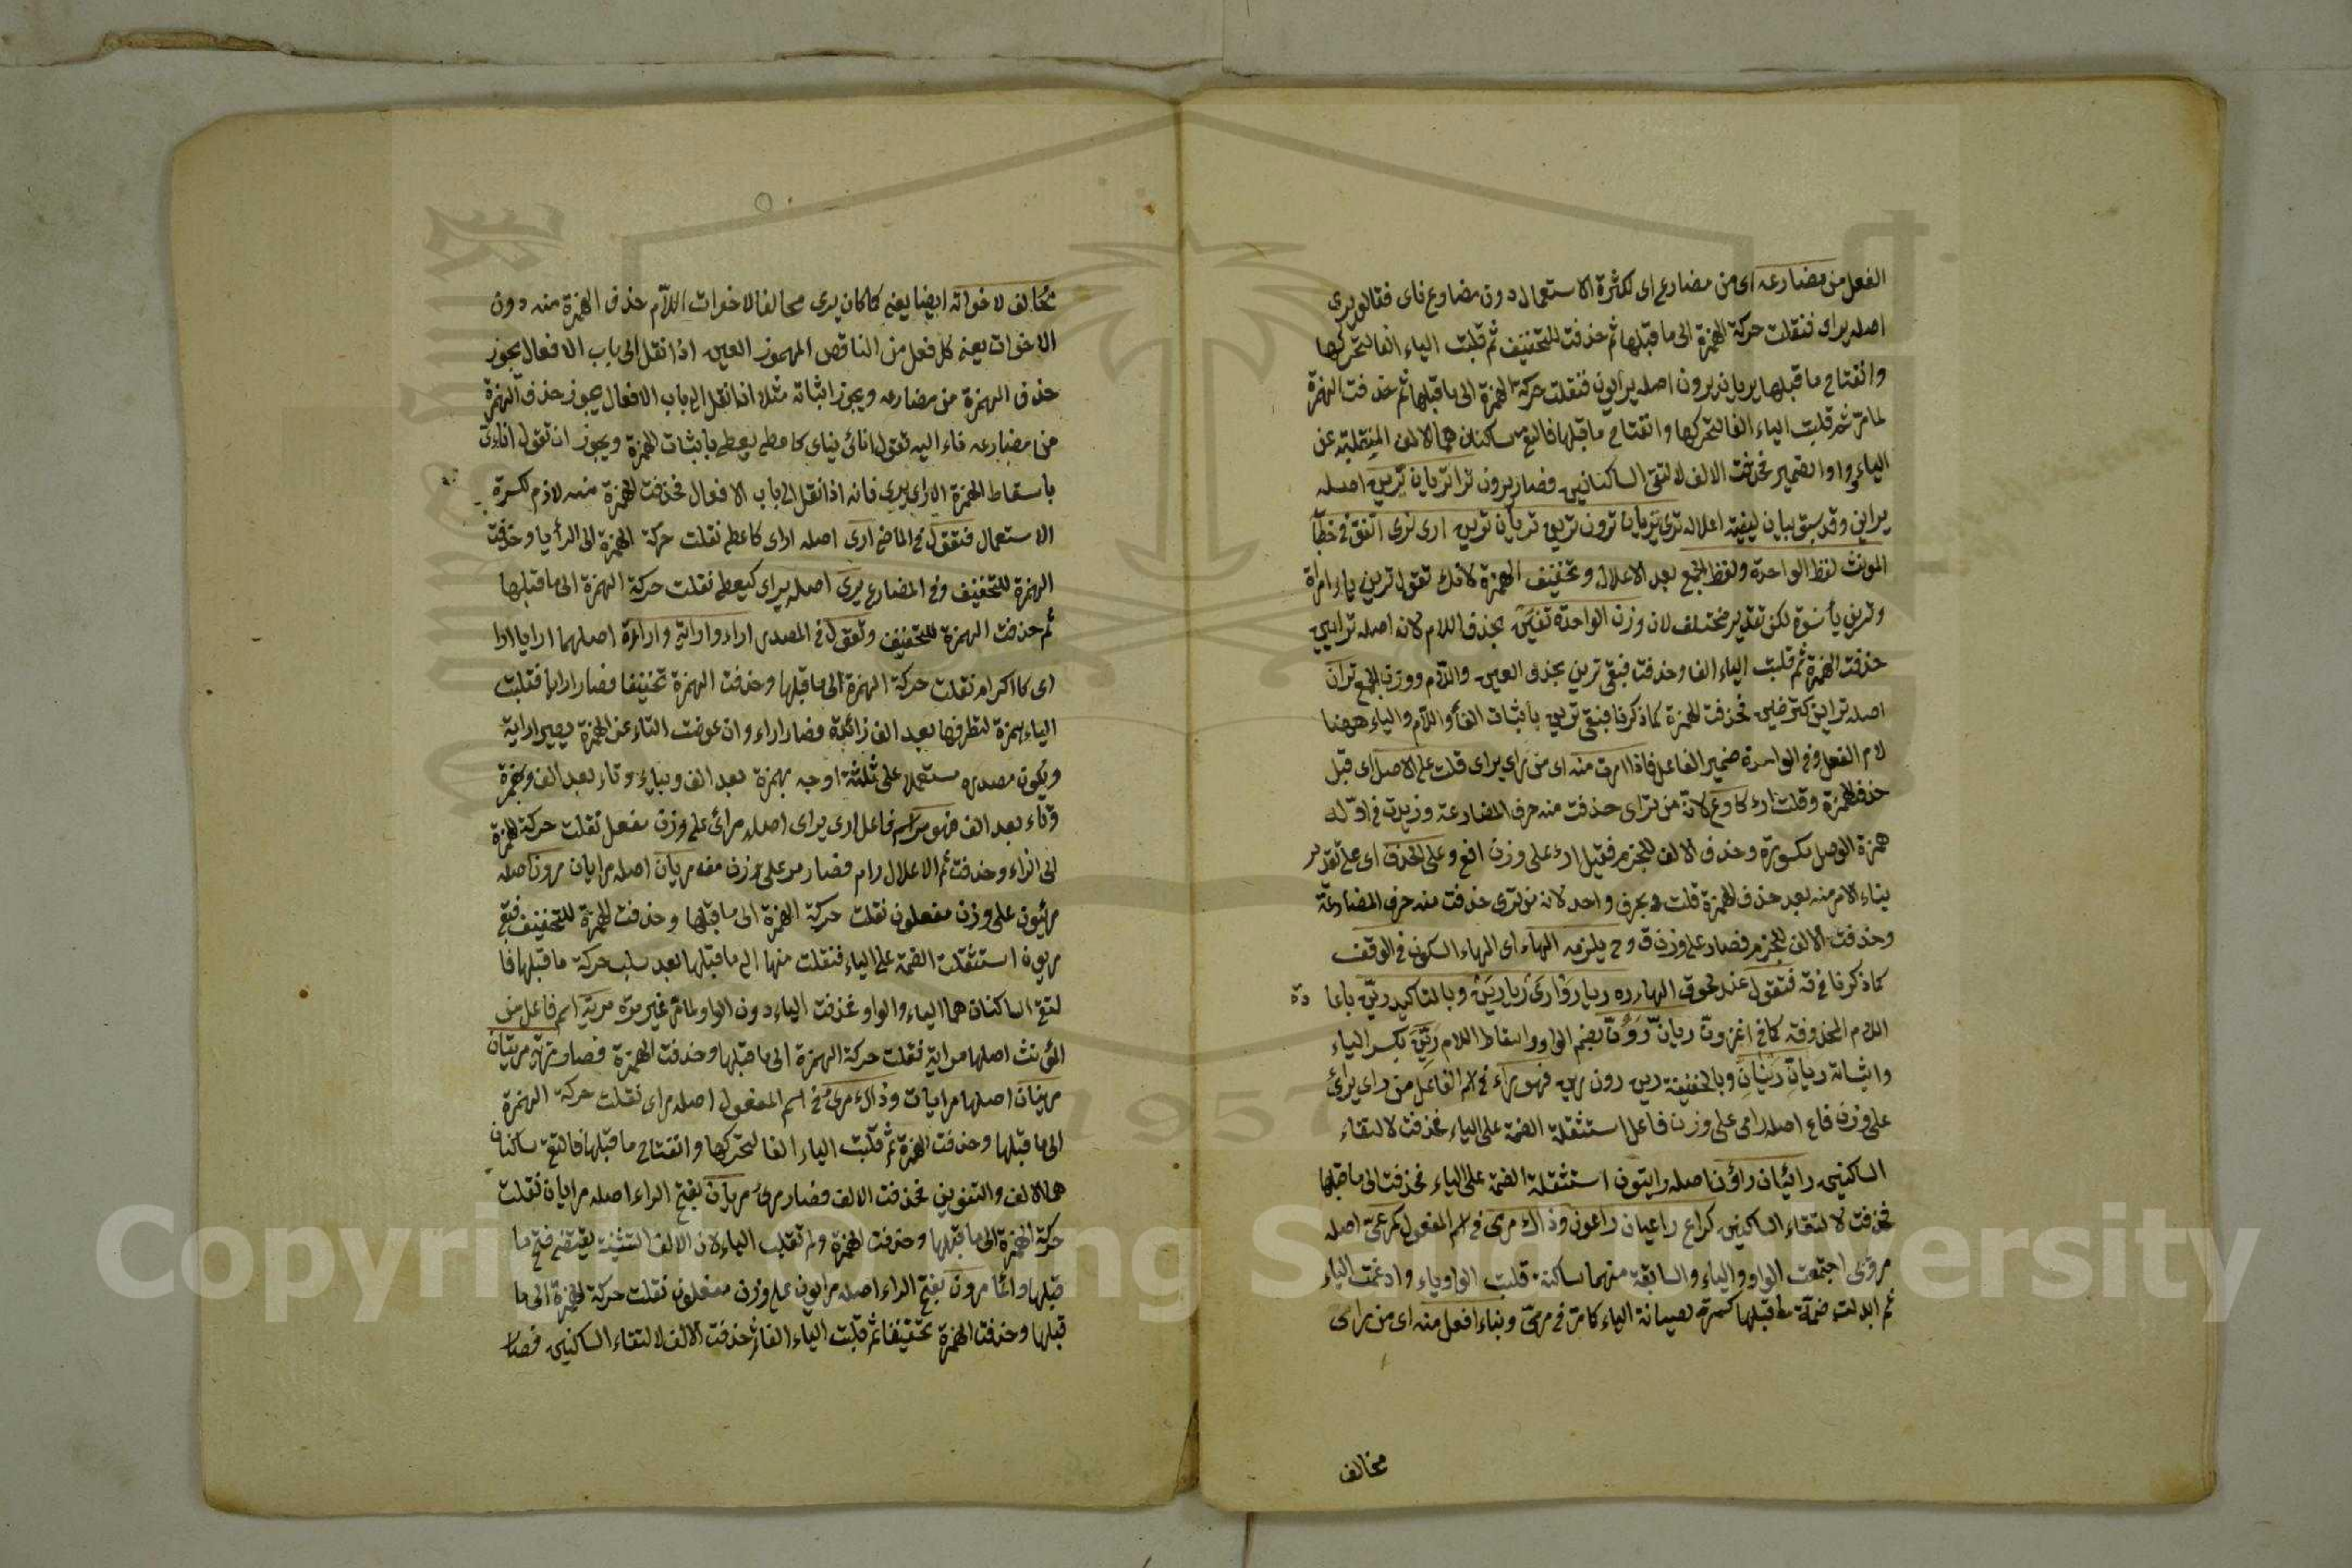 الفعل من مضارعه اى من مضارع اى لكثرة الاستعمال دون مضارع ناى فقالو يرى
اصله يراى فنقلت حركة الهمزة الى ما قبلها ثم حذفت للتخفيف ثم قلبت الياء الفا لتحركها
وانفتاح ما قبلها يريان يرون اصله يرايون فنقلت حركة الهمزة الى ما قبلها ثم حذفت الهمزة
لما مر ثم قلبت الياء الفا لتحركها وانفتاح ما قبلها فالتقى ساكنان هما الالف المنقلبة عن
الياء وواو الضمير فحذفت الالف لالتقى الساكنانين فصار يرون ترا تريان يرين اصله
يراين وقد سبق بيان كيفية اعلاله ترى تريان ترون ترين تريان ترين ارى نرى اتفق فى خطا
المونث لفظ الواحدة ولفظ الجمع بعد الاعلال وتخفيف الهمزة لانك تقول ترين ياء امراة
وترين يا نسوة لكن تقديره مختلف لان وزن الواحدة تفين بحذف اللام لانه اصله ترايين
حذفت الهمزة ثم قلبت الياء الفا وحذفت فبقى ترين بحذف العين واللام ووزن الجمع
اصله تراين كترضين فحذفت الهمزة كما ذكرنا فبقى ترين باثبات الفاء واللام والياء ههنا
لام الفعل وفى الواحدة ضمير الفاعل فاذا امرت منه اى من راى يراى قلت على الاصل اى قبل
حذف الهمزة وقلت ارء كارع لانه من تراى حذفت منه حرف المضارعة وزيدت فى اوله
همزة الوصل مكسورة وحذف الالف للجزم فقيل ارء على وزن افع وعلى الحذف اى على تقدير
بناء الامر منه بعد حذف الهمزة قلت بحرف واحد لانه من ترى حذفت منه حرف المضارعة
وحذفت الالف للجزم فصار على وزن ق وح يلزمه الهاء اى الهاء السكون فى الوقف
كما ذكرنا فى قه فتقول عند لحوق الهاء ره ريا روا رى ريا رين وبالتاكيد رين باعا دة
اللام المحذوفة كما فى اغزون ريان رون بضم الواو واسقاط اللام رين بكسر الياء
واثباته ريان رينان وبالخفيفة رين رون رين فهو راء فى اسم الفاعل من راى يراى
على وزن فاع اصله رامى على وزن فاعل استثقلة الضمة على الياء فحذفت لالتقاء
الساكنين رائيان راؤن اصله رايئون استثقلة الضمة على الياء فحذفت الى ما قبلها
فحذفت لالتقاء الساكنين كراع راعيان راعون وذاك مرى فى اسم المفعول كمرعى اصله
مروى اجتمعت الواو والياء والسابقة منهما ساكنة قلبت الواو ياء وادغمت الياء
ثم ابدلت ضمة ما قبلها كسرة لصيانة الياء كما مر فى مرمى وبناء افعل منه اى من راى
مخالف
مخالف لاخواته ايضا يعنى كما كان يرى مخالفا لاخوات اللام حذف الهمزة منه دون
الاخوات يعنى كل فعل من الناقص المهموز العين اذا نقل الى باب الافعال يجوز
حذف الهمزة من مضارعه ويجوز اثباته مثلا اذا نقل الى باب الافعال يجوز حذف الهمزة
من مضارعه ناء اليه تقول انائ يناى كاعطى يعطى باثبات الهمزة ويجوز ان تقول
باسقاط الهمزة الا راى يرى فانه اذا نقل الى باب الافعال فحذفت الهمزة منه لازم لكثرة
الاستعمال فتقول فى الماضى ارى اصله اراى كاعطى نقلت حركة الهمزة الى الراء وحذفت
الهمزة للتخفيف وفى المضارع يرى اصله يراى كيعطى نقلت حركة الهمزة الى ما قبلها
ثم حذفت الهمزة للتخفيف وتقول فى المصدر اراء واراية واراءة اصلهما ارايا ارا
اى كاكرام نقلت حركة الهمزة الى ما قبلها وحذفت الهمزة تخفيفا فصار ارايا فقلبت
الياء همزة لتطرفها بعد الف زائدة فصار اراء وان عوضت التاء عن الهمزة يصير اراية
ويكون مصدره مستعملا على ثلثة اوجه بهمزة بعد الف وبياء وتاء بعد الف وبهمزة
وتاء بعد الف فهو مر اسم فاعل ارى يراى اصله مرائ على وزن مفعل نقلت حركة الهمزة
الى الراء وحذفت ثم الاعلال رام فصار مر على وزن مف مريان اصله مرايان مرون اصله
مرئيون على وزن مفعلون نقلت حركة الهمزة الى ما قبلها وحذفت الهمزة للتخفيف فبقى
مريون استثقلت الضمة على الياء فنقلت منها الى ما قبلها بعد سلب حركة ما قبلها فا
لتقى الساكنان هما الياء والواو فحذفت الياء دون الواو لما مر غير مرة مرية اسم فاعل من
المؤنث اصلها مراية نقلت حركة الهمزة الى ما قبلها وحذفت الهمزة فصار مرية مريتان
مريتان اصلها مرايات وذاك مرى فى اسم المفعول اصله مراى نقلت حركة الهمزة
الى ما قبلها وحذفت الهمزة ثم قلبت الياء الفا لتحركها وانفتاح ما قبلها فالتقى ساكنان
هما الالف والتنوين فحذفت الالف فصار مرى مريان بفتح الراء اصله مرايان نقلت
حركة الهمزة الى ما قبلها وحذفت الهمزة ولم تقلب الياء لان الالف التثنية يقتضى فتح ما
قبلها واما مرون بفتح الراء اصله مرايون على وزن مفعلون نقلت حركة الهمزة الى ما
قبلها وحذفت الهمزة تخفيفا ثم قلبت الياء الفا ثم حذفت الالف لالتقاء الساكنين فصار
Copyright © King Saud University
1957